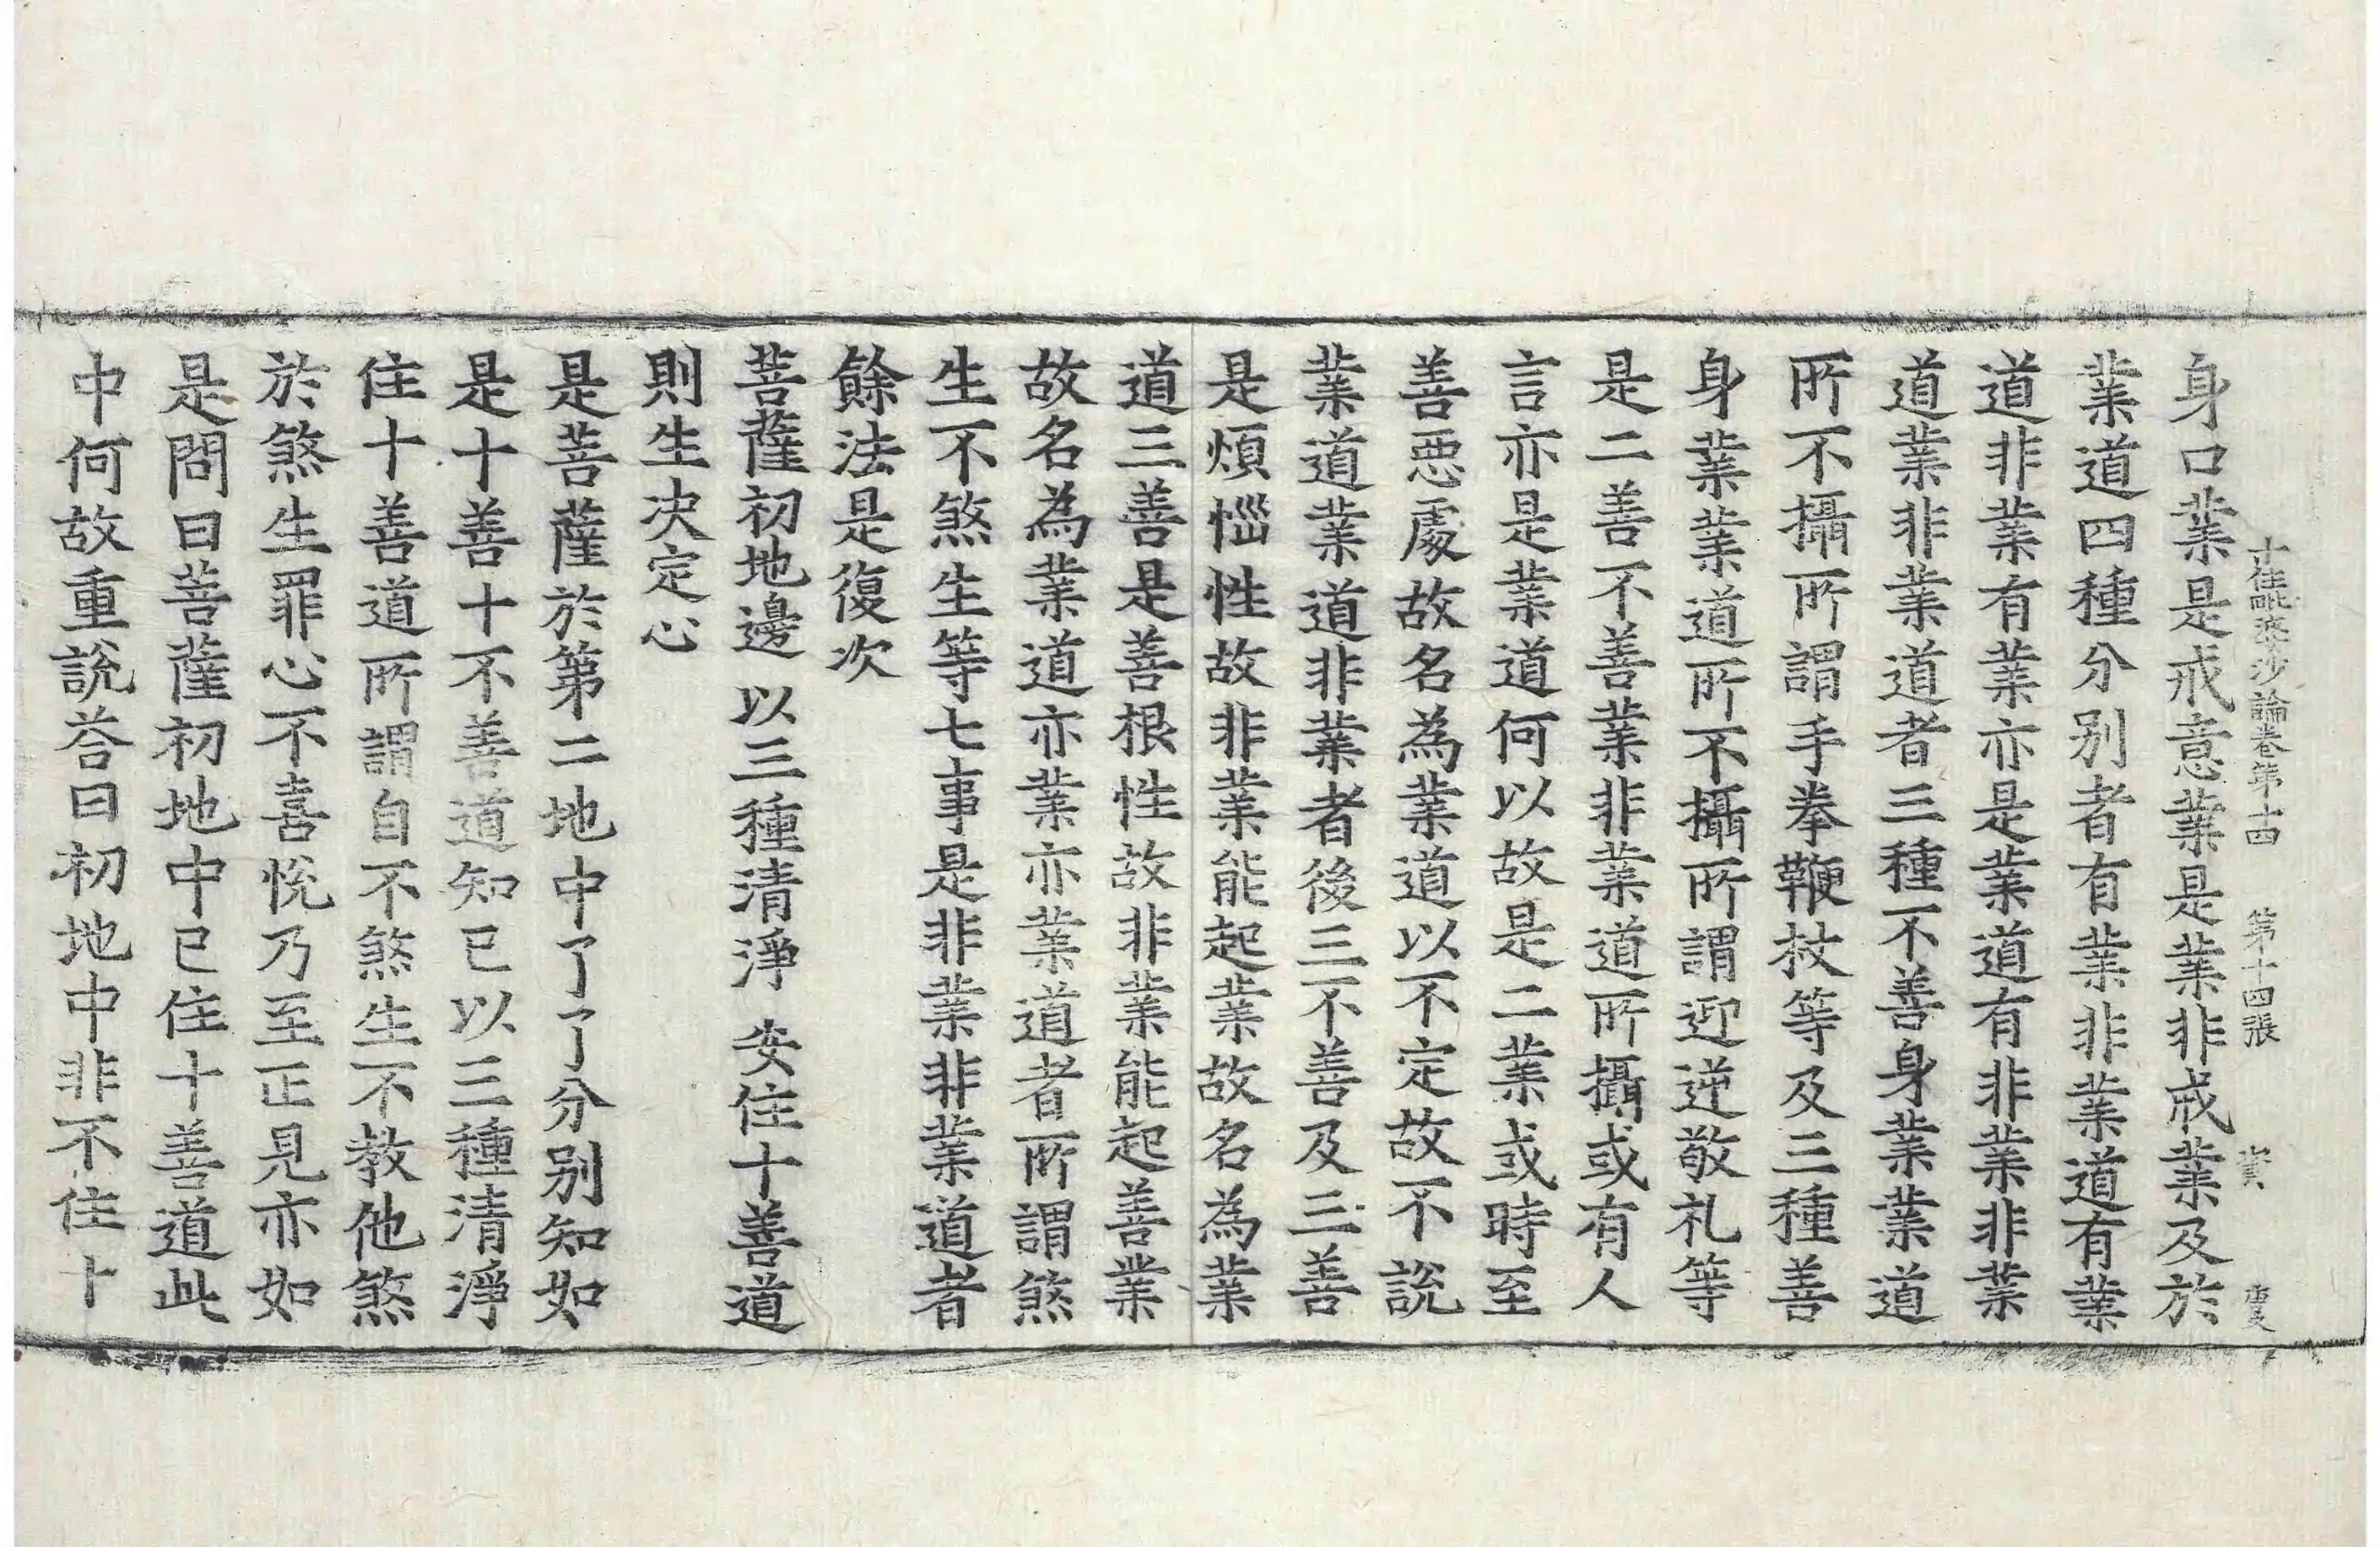 十住毗婆沙論卷第十四 第十四張 資
身口業是戒意業是業非戒業及於
業道四種分別者有業非業道有業
道非業有業亦是業道有非業非業
道業非業道者三種不善身業業道
所不攝所謂手拳鞭杖等及三種善
身業業道所不攝所謂迎逆敬礼等
是二善不善業非業道所攝或有人
言亦是業道何以故是二業或時至
善惡處故名為業道以不定故不說
業道業道非業者後三不善及三善
是煩惱性故非業能起業故名為業
道三善是善根性故非業能起善業
故名為業道亦業亦業道者所謂煞
生不煞生等七事是非業非業道者
餘法是復次
菩薩初地邊 以三種清淨 安住十善道
則生決定心
是菩薩於第二地中了了分別知如
是十善十不善道知已以三種清淨
住十善道所謂自不煞生不教他煞
於煞生罪心不喜悅乃至正見亦如
是問曰菩薩初地中已住十善道此
中何故重說荅曰初地中非不住十